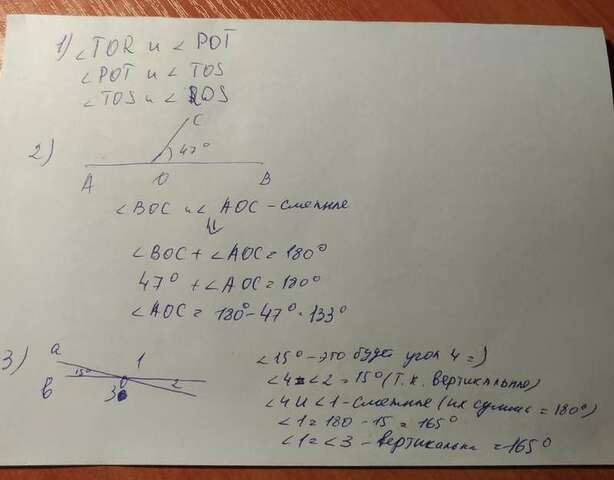 1) ∠TOR и ∠ POT
∠POT и ∠ TOS
∠TOS и ∠ ROS
2)
C
47°
A O B
∠BOC и ∠ AOC - смежные
⇓
∠BOC + ∠AOC = 180°
47° + ∠AOC = 180°
∠AOC = 180° - 47° = 133°
3)
a
15° 1
b 3 2
∠15° - это будет угол 4 =>
∠4 = ∠2 = 15° (т.к. вертикальные)
∠4 и ∠1 - смежные (их сумма = 180°)
∠1 = 180 - 15 = 165°
∠1 = ∠3 - вертикальны = 165°